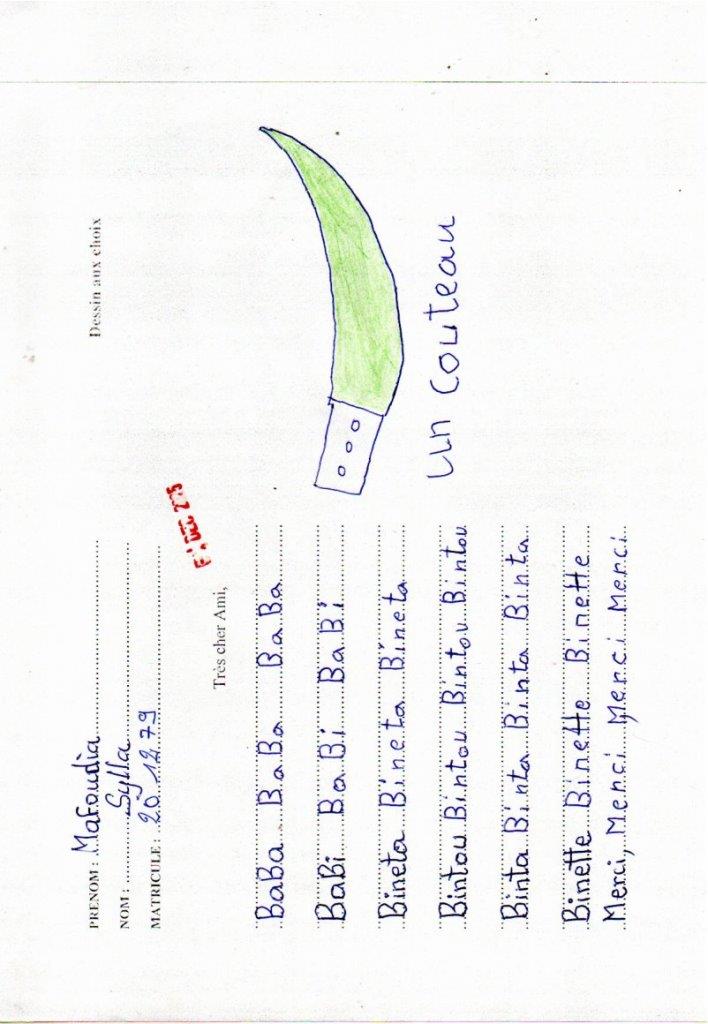 PRENOM : Mafoudia
NOM : Sylla
MATRICULE : 20 12 79
DEC 2005
Très cher Ami,
BaBa BaBa BaBa BaBa
BaBi BaBi BaBi
Bineta Bineta Bineta
Bintou Bintou Bintou Bintou
Binta Binta Binta Binta
Binette Binette Binette
Merci, Merci Merci Merci
Dessin aux choix
un couteau